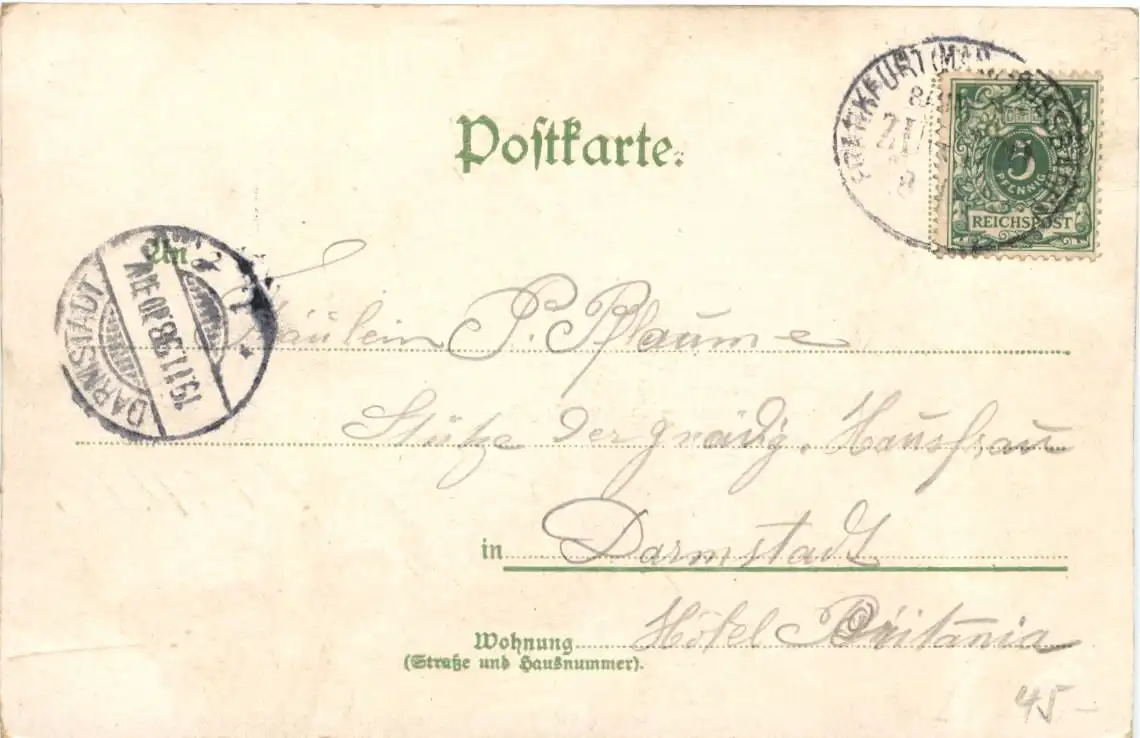 Postkarte.
FRANKFURT (MAIN
ZUG
5
PFENNIG
REICHSPOST
An
DARMSTADT
19.11.98.
Fräulein P. Pflaume
Stütze der gnädig. Hausfrau
in Darmstadt
Wohnung Hôtel Britania
(Straße und Hausnummer).
45-